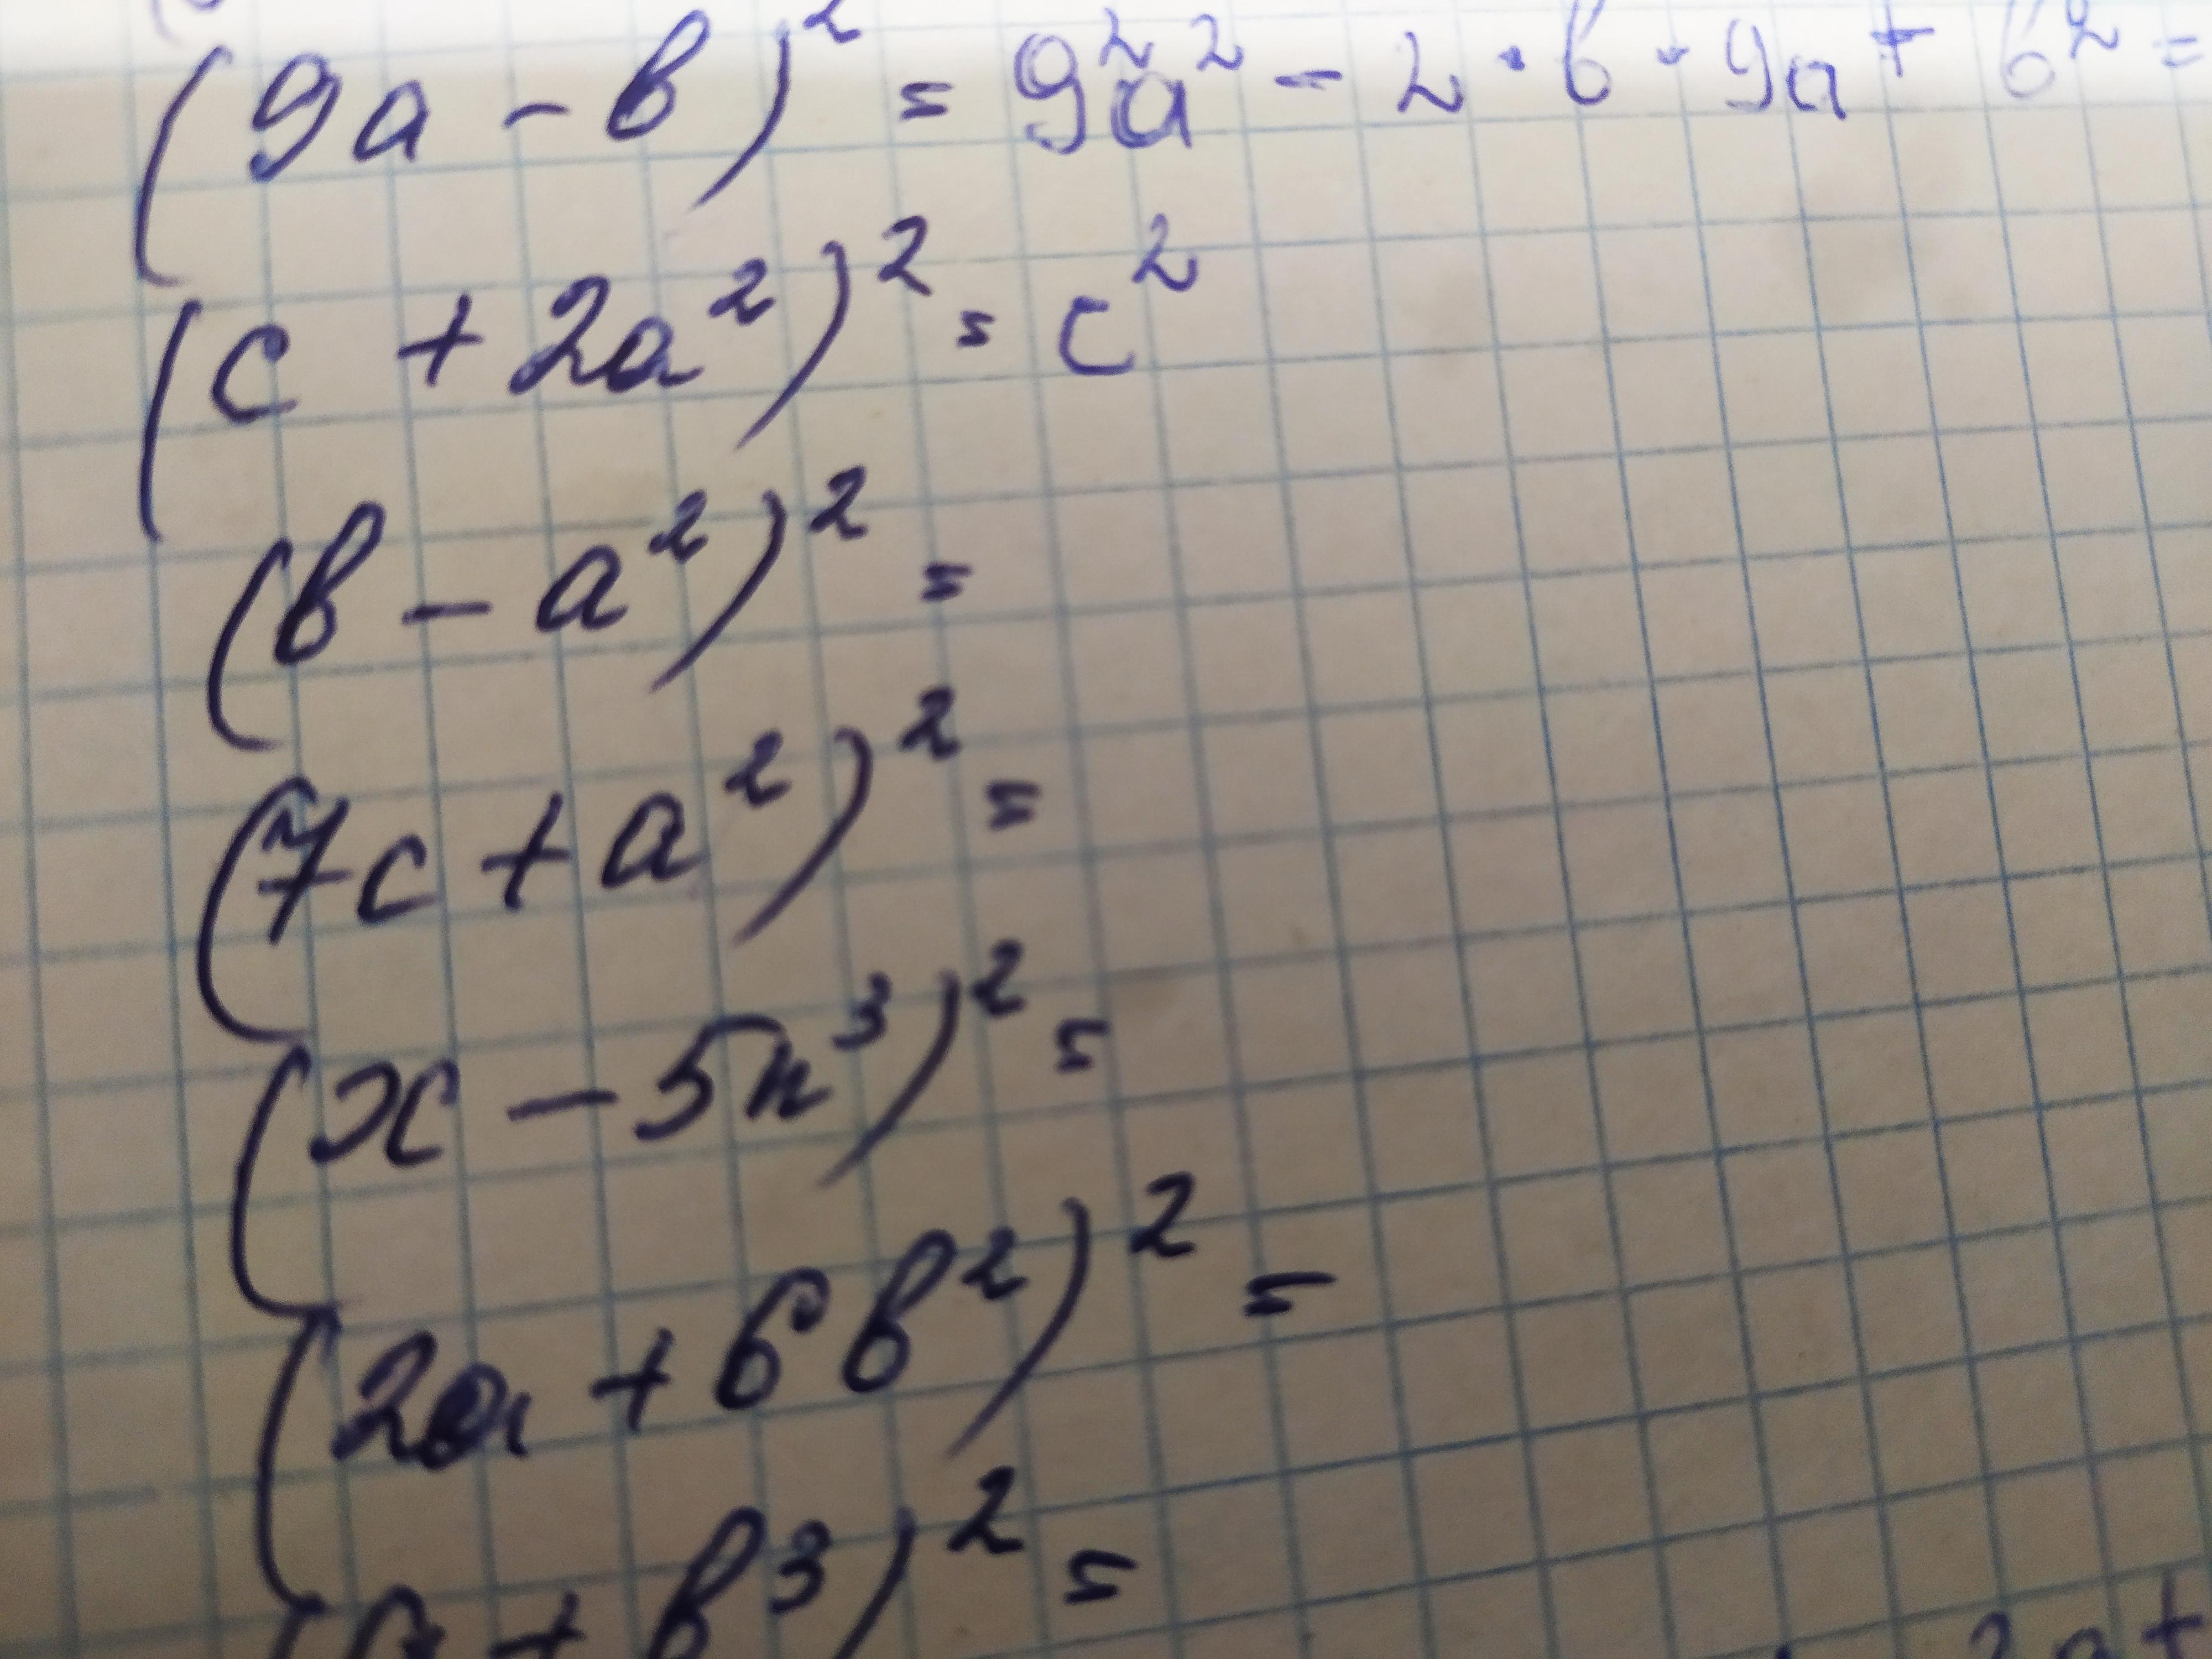 (9a - b)² = 9²a² - 2 · b · 9a + b² =
(c + 2a²)² = c²
(b - a²)² =
(7c + a²)² =
(x - 5n³)² =
(2a + 6b²)² =
(a + b³)² =